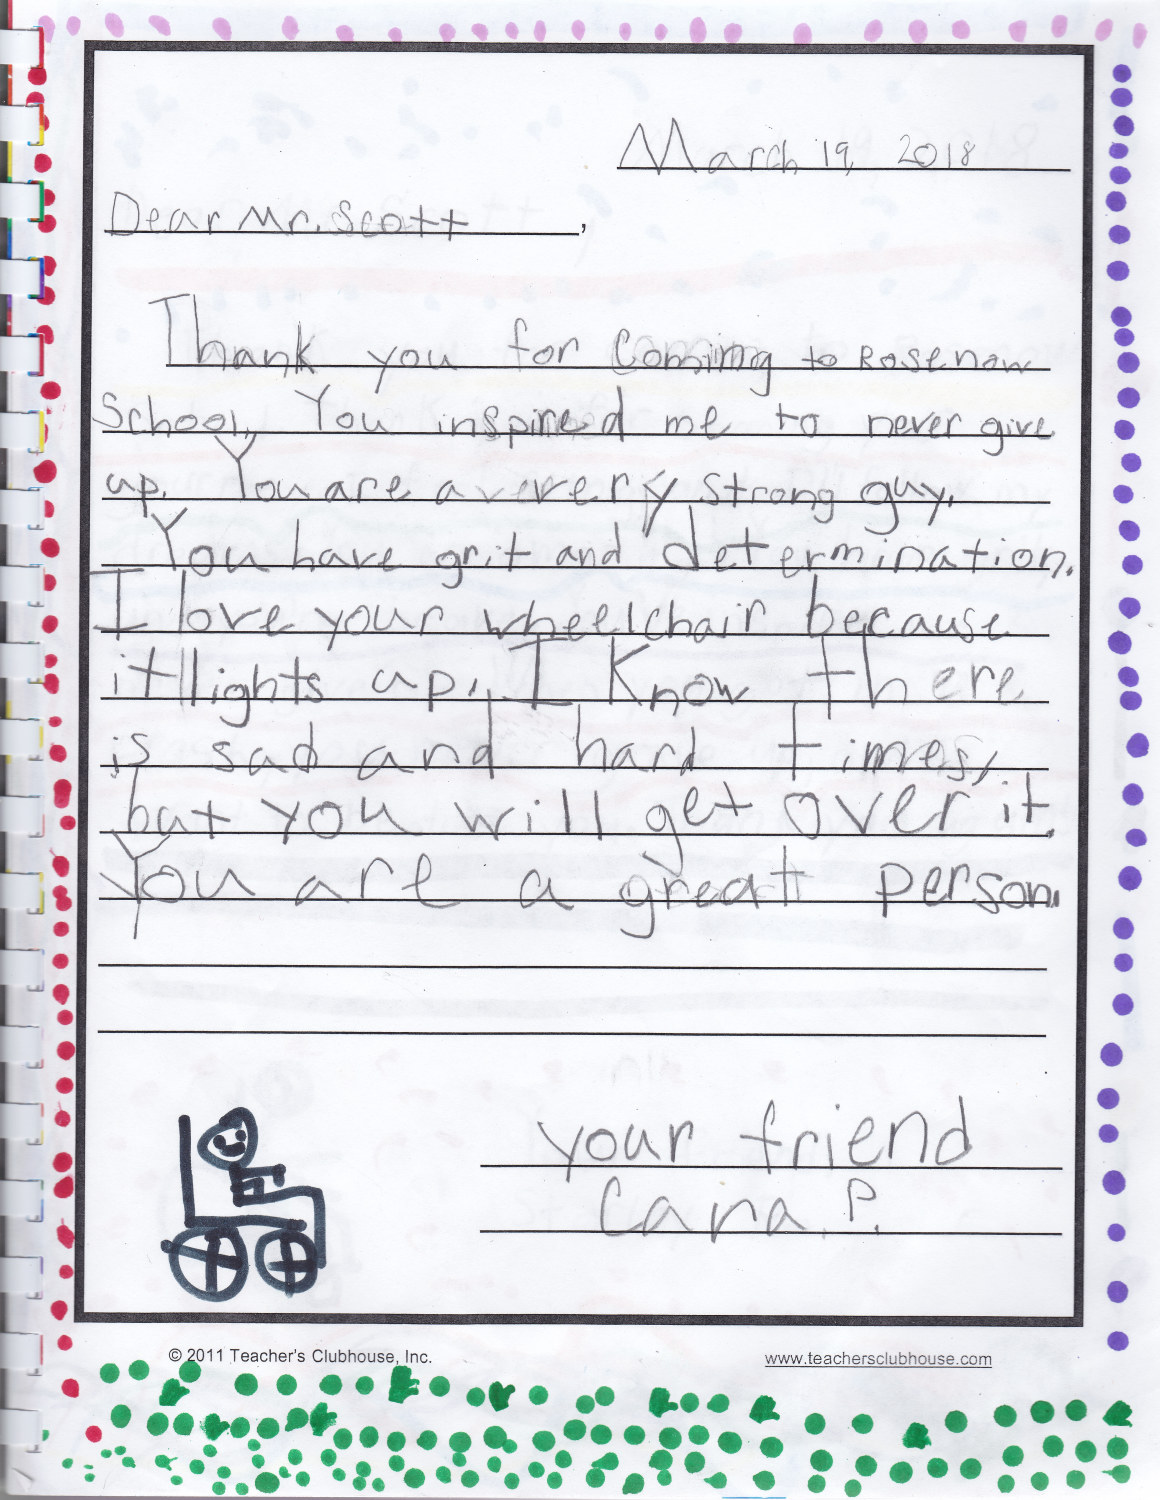 March 19, 2018
Dear Mr. Scott,
Thank you for Coming to Rosenow
School. You inspired me to never give
up. You are a very very strong guy.
You have grit and determination.
I love your wheelchair because
it lights up. I Know there
is sad and hard times,
but you will get over it.
You are a great person.
your friend
Cara P.
© 2011 Teacher's Clubhouse, Inc.
www.teachersclubhouse.com